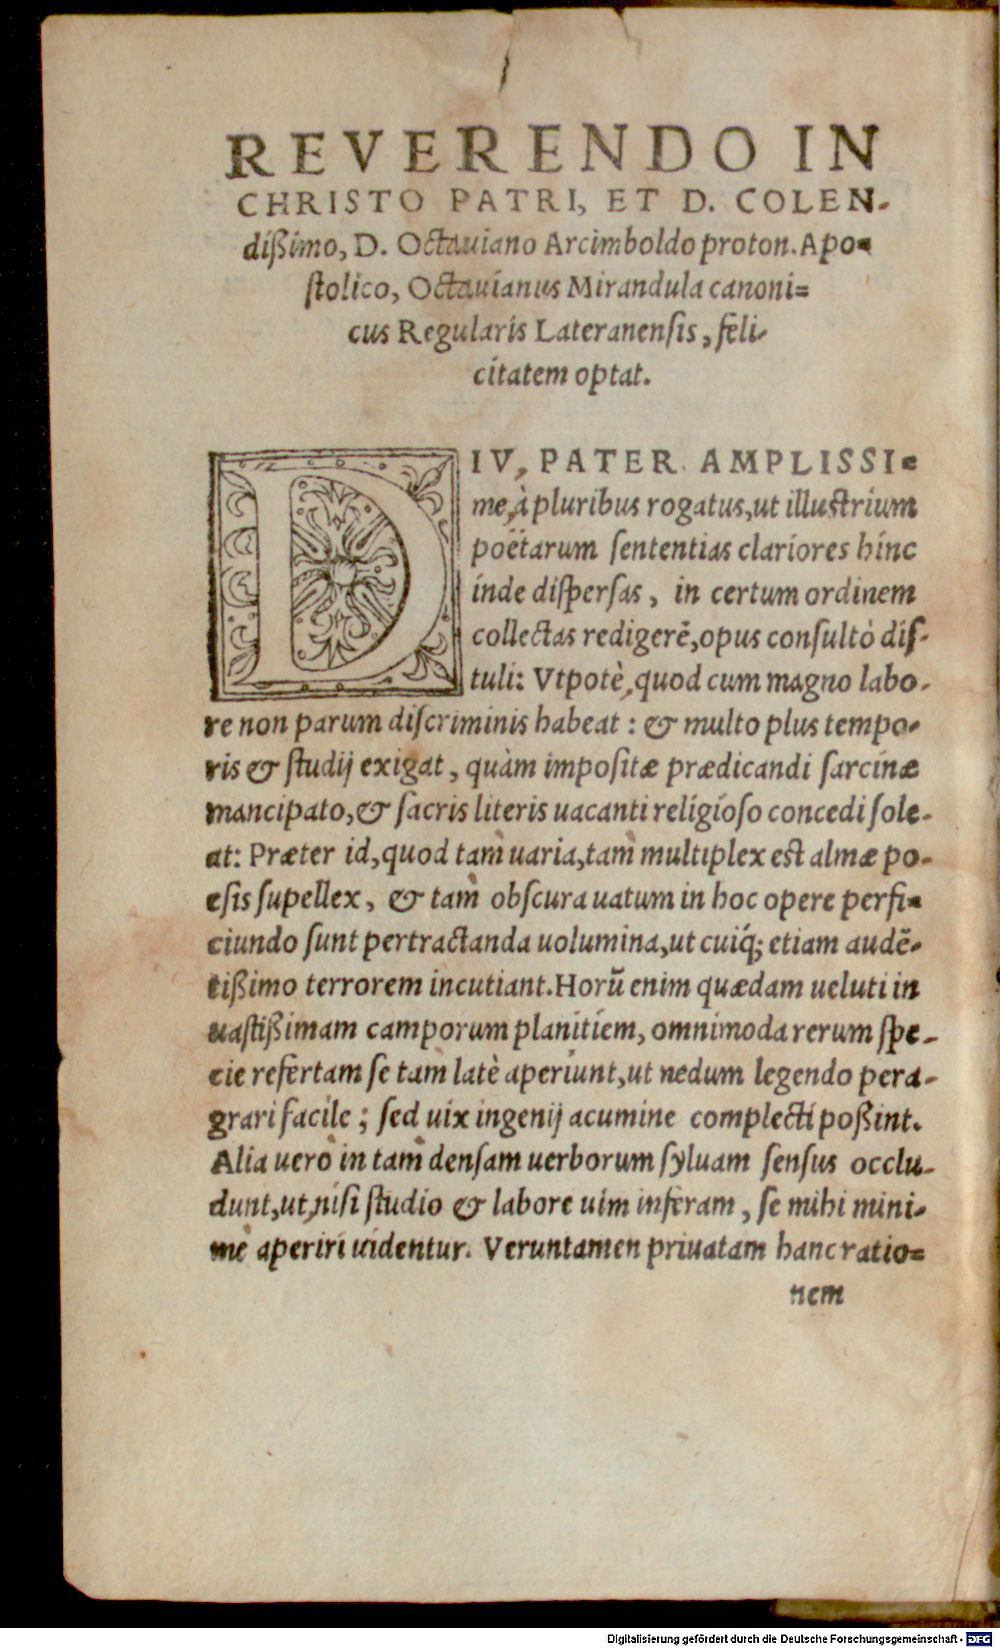 REVERENDO IN
CHRISTO PATRI, ET D. COLEN-
dißimo, D. Octauiano Arcimboldo proton. Apo=
stolico, Octauianus Mirandula canoni=
cus Regularis Lateranensis, feli-
citatem optat.
DIV, PATER AMPLISSI=
me, à pluribus rogatus, ut illustrium
poëtarum sententias clariores hinc
inde dispersas, in certum ordinem
collectas redigerē, opus consultò dis-
tuli: Vtpotè, quod cum magno labo-
re non parum discriminis habeat: & multo plus tempo-
ris & studij exigat, quàm impositæ prædicandi sarcinæ
mancipato, & sacris literis uacanti religioso concedi sole-
at: Præter id, quod tam̀ uaria, tam̀ multiplex est almæ po-
esis supellex, & tam̀ obscura uatum in hoc opere perfi=
ciundo sunt pertractanda uolumina, ut cuiq́; etiam audē-
tißimo terrorem incutiant. Horū enim quædam ueluti in
uastißimam camporum planitiem, omnimoda rerum spe-
cie refertam se tam̀ latè aperiunt, ut nedum legendo pera-
grari facile; sed uix ingenij acumine complecti poßint.
Alia uerò in tam̀ densam uerborum syluam sensus occlu-
dunt, ut, nisi studio & labore uim inferam, se mihi mini-
mè aperiri uidentur. Veruntamen priuatam hanc ratio=
nem
Digitalisierung gefördert durch die Deutsche Forschungsgemeinschaft - DFG